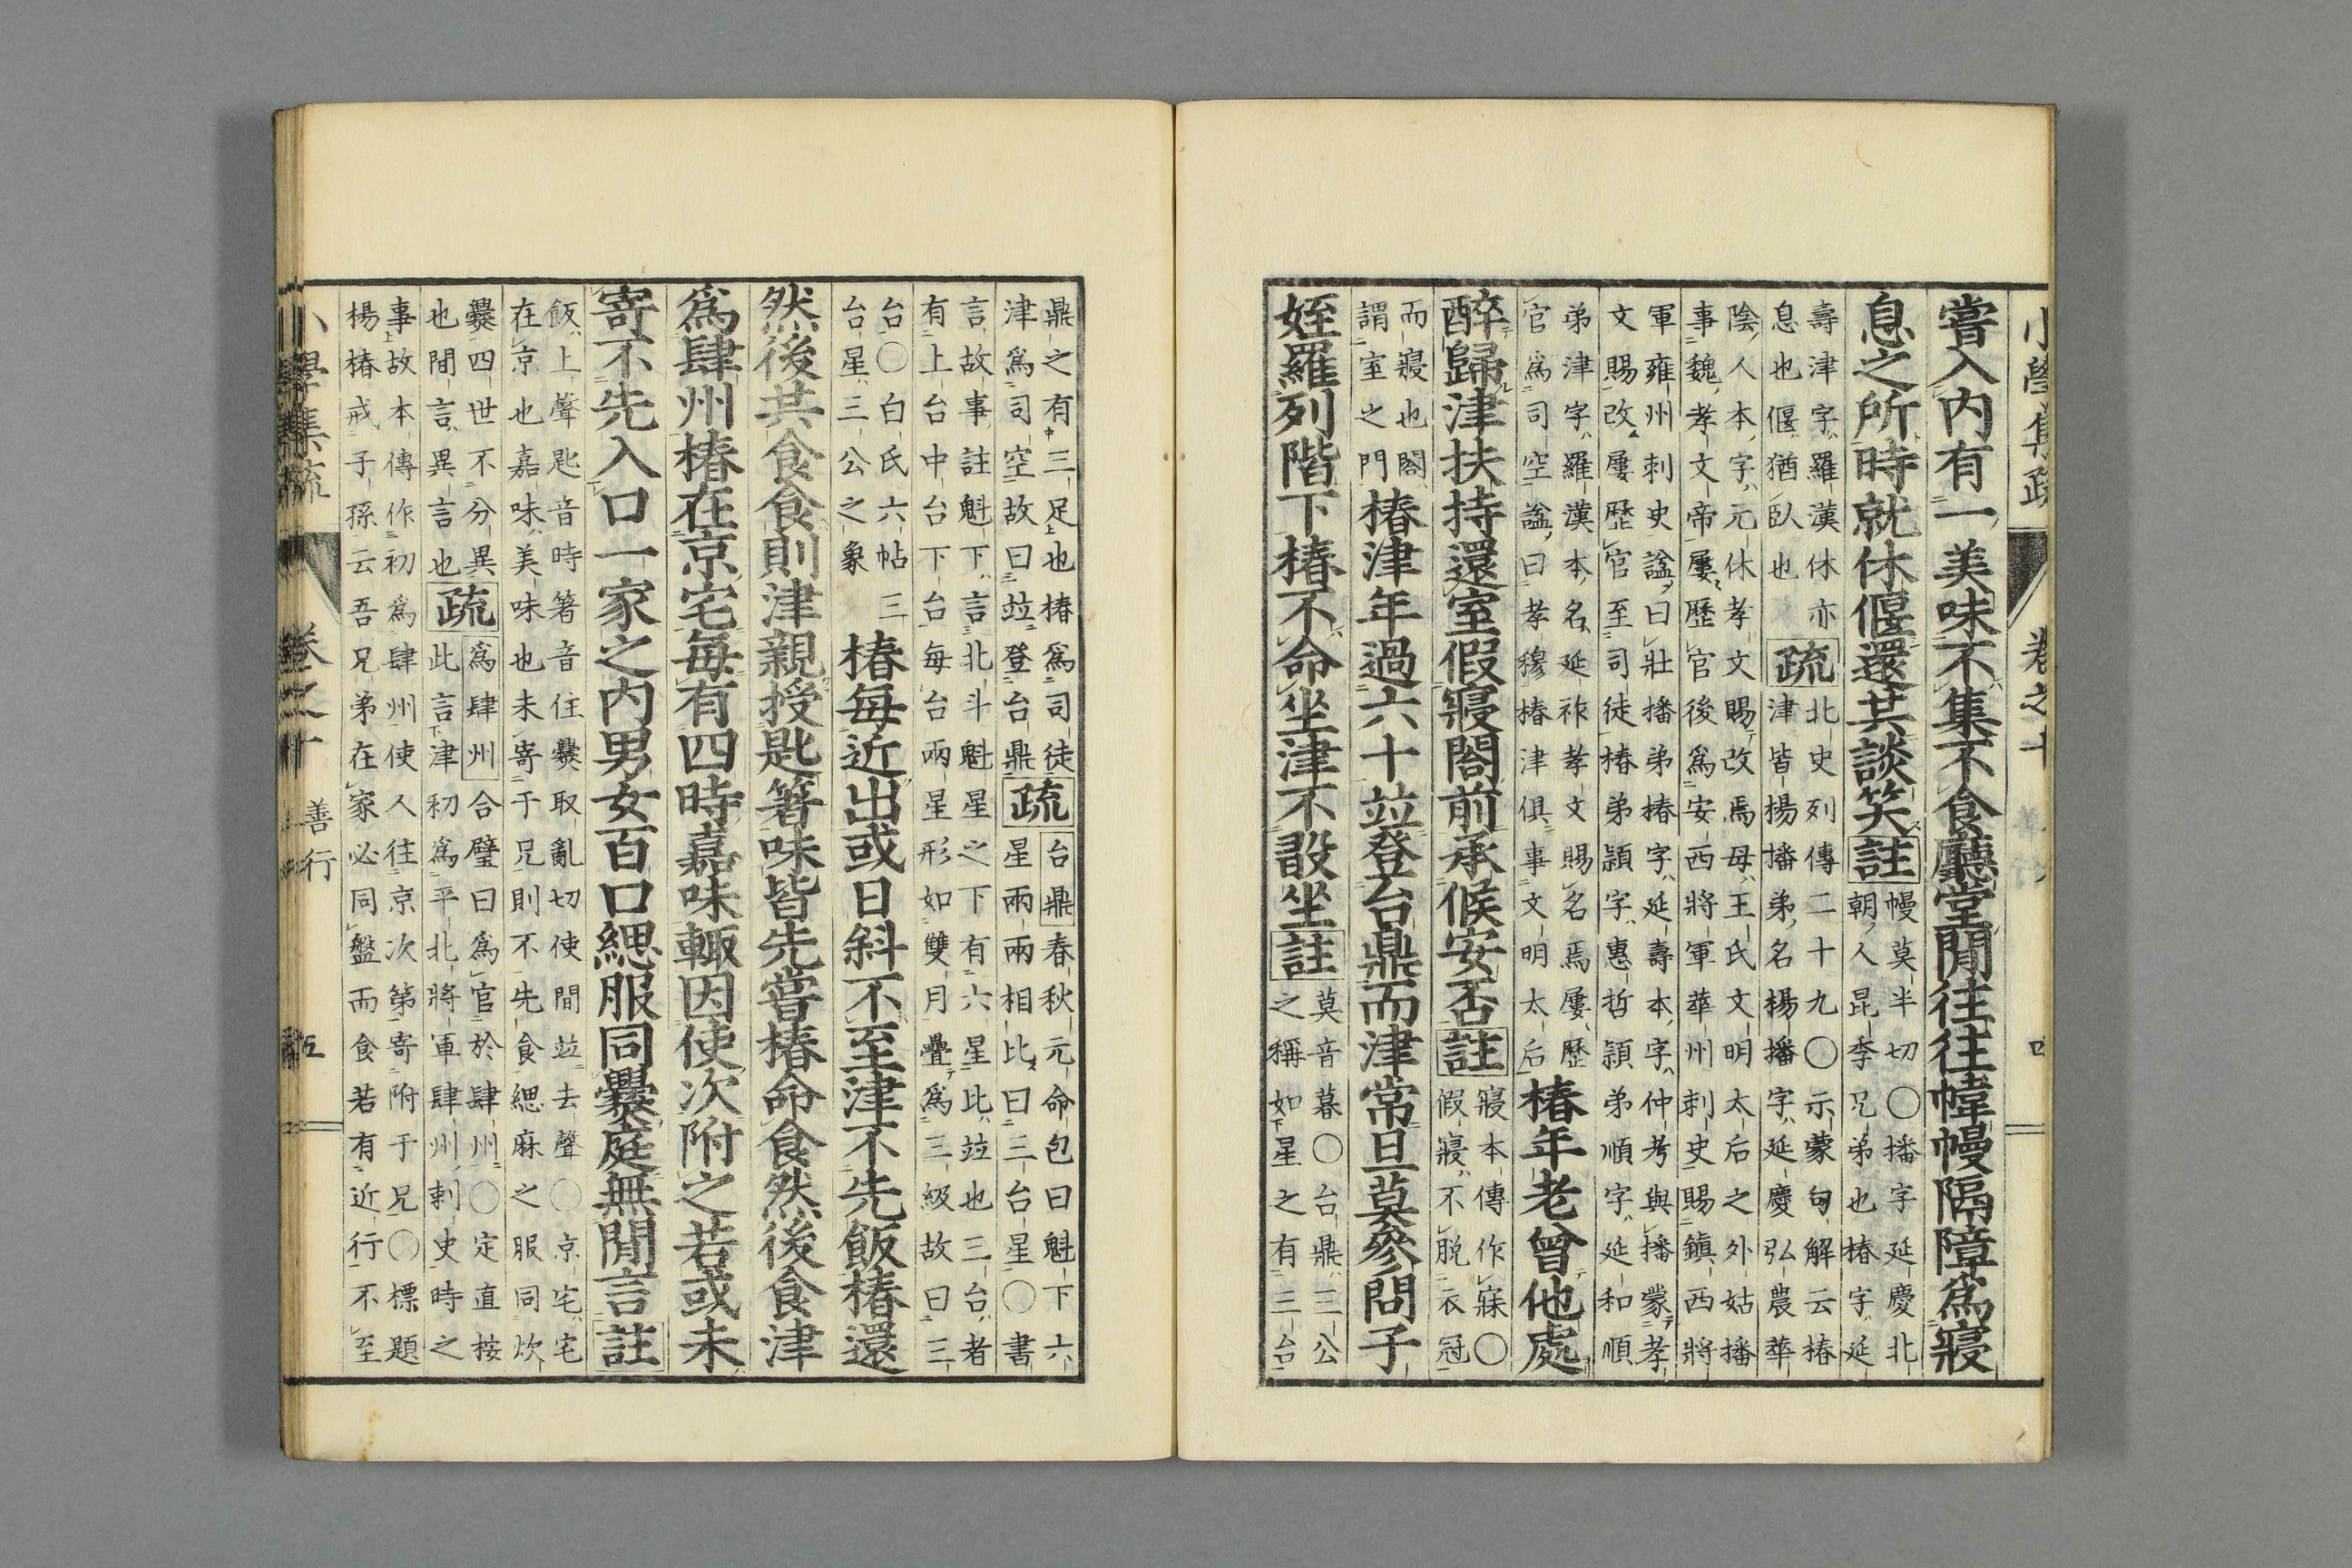 小學集疏 卷之十
嘗入内有一美味不集不食廳堂閒往往幃幔隔障爲寢
息之所時就休偃還共談笑註幔莫半切〇播字延慶北
朝人昆季兄弟也椿字延
壽津字羅漢休亦
息也偃猶臥也疏北史列傳二十九〇示蒙句解云椿
津皆楊播弟名楊播字延慶弘農華
陰人本字元休孝文賜改焉母王氏文明太后之外姑播
事魏孝文帝屢歷官後爲安西將軍華州刺史賜鎮西將
軍雍州刺史諡曰壯播弟椿字延壽本字仲考與播蒙孝
文賜改屢歷官至司徒椿弟頴字惠哲頴弟順字延和順
弟津字羅漢本名延祚孝文賜名焉屢歷
官爲司空諡曰孝穆椿津俱事文明太后椿年老曾他處
醉歸津扶持還室假寢閤前承候安否註寢本傳作寐〇
假寢不脫衣冠
而寢也閤
謂室之門椿津年過六十竝登台鼎而津常旦莫參問子
姪羅列階下椿不命坐津不敢坐註莫音暮〇台鼎三公
之稱如星之有三台
鼎之有三足也椿爲司徒
津爲司空故曰竝登台鼎疏台鼎春秋元命包曰魁下六
星兩兩相比曰三台星〇書
言故事註魁下言北斗魁星之下有六星比竝也三台者
有上台中台下台每台兩星形如雙月疊爲三級故曰三
台〇白氏六帖三
台星三公之象椿每近出或日斜不至津不先飯椿還
然後共食食則津親授匙箸味皆先嘗椿命食然後食津
爲肆州椿在京宅每有四時嘉味輙因使次附之若或未
寄不先入口一家之内男女百口緦服同爨庭無閒言註
飯上聲匙音時箸音住爨取亂切使間竝去聲〇京宅宅
在京也嘉味美味也未寄于兄則不先食緦麻之服同炊
爨四世不分異
也間言異言也疏爲肆州合璧曰爲官於肆州〇定直按
此言津初爲平北將軍肆州刺史時之
事故本傳作初爲肆州使人往京次第寄附于兄〇標題
楊椿戒子孫云吾兄弟在家必同盤而食若有近行不至
小學集疏 卷之十 善行 五